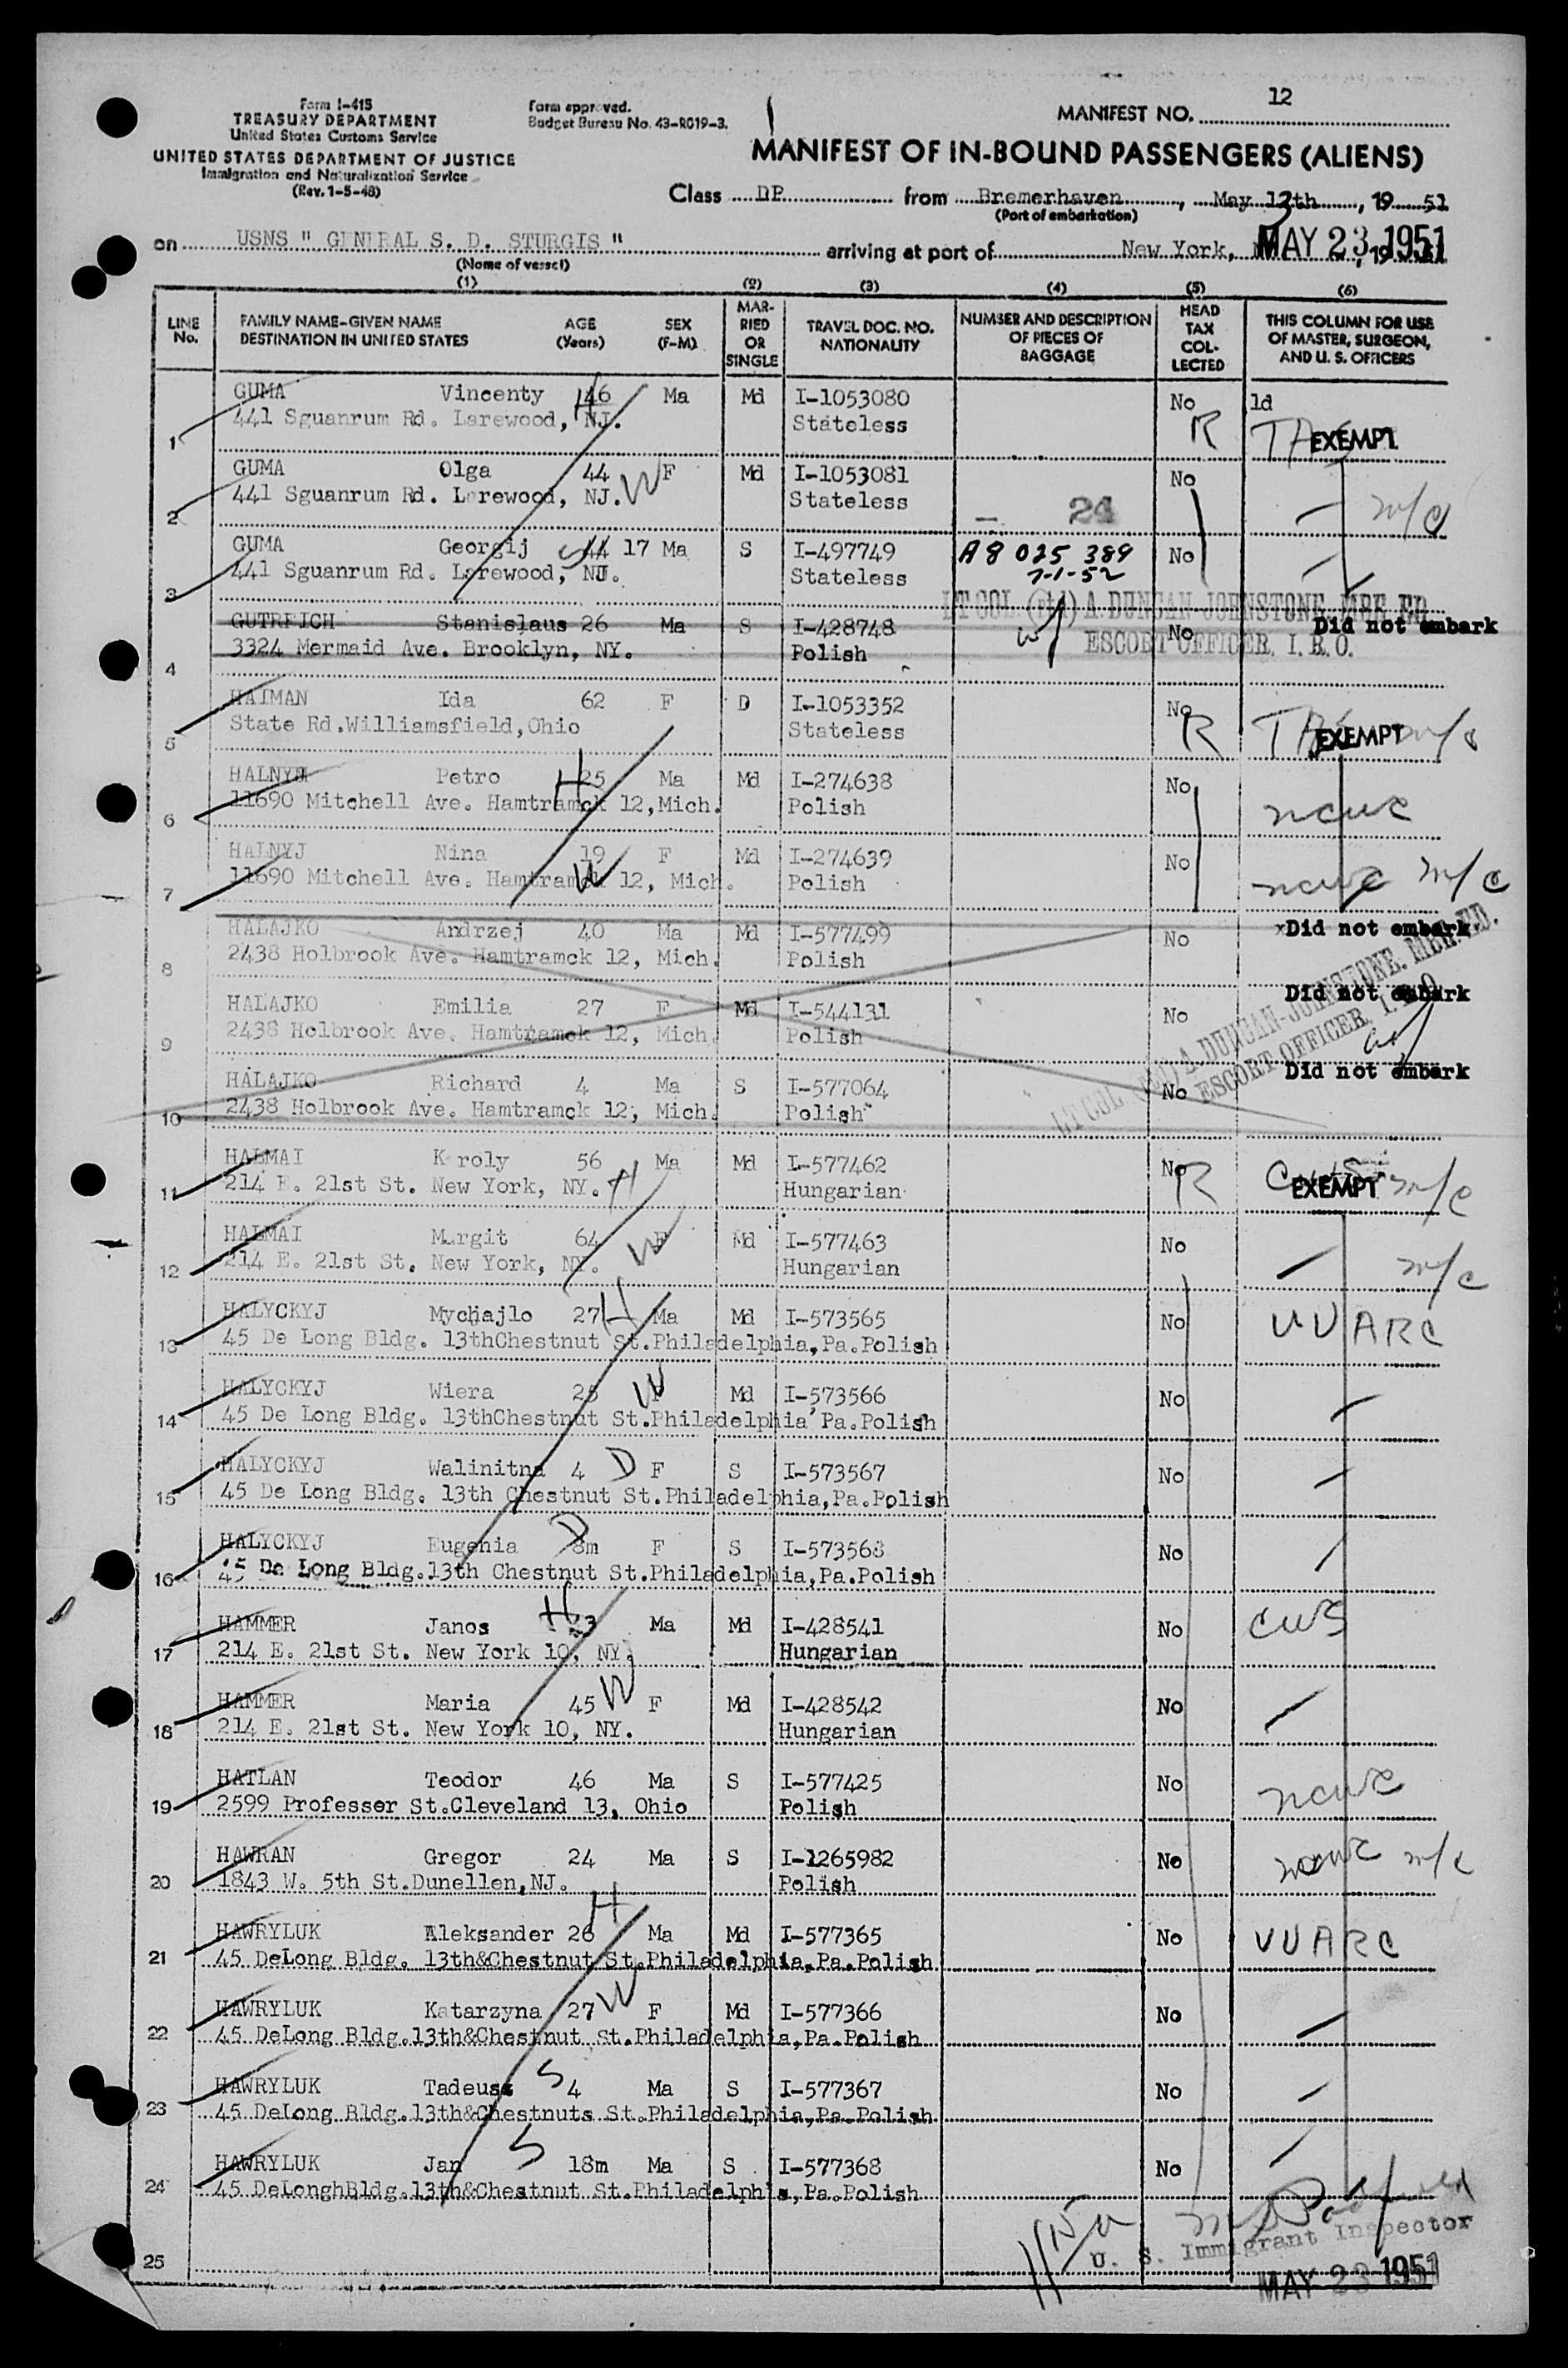 Form I-415
TREASURY DEPARTMENT
United States Customs Service
UNITED STATES DEPARTMENT OF JUSTICE
Immigration and Naturalization Service
(Rev. 1-5-48)
Form approved.
Budget Bureau No. 43-R019-3.
MANIFEST NO. 12
MANIFEST OF IN-BOUND PASSENGERS (ALIENS)
Class DP from Bremerhaven, May 13th, 19 51
(Port of embarkation)
on USNS " GENERAL S. D. STURGIS " arriving at port of New York, MAY 23 1951
(Name of vessel)
(1) (2) (3) (4) (5) (6)
LINE No. FAMILY NAME-GIVEN NAME DESTINATION IN UNITED STATES AGE (Years) SEX (F-M) MARRIED OR SINGLE TRAVEL DOC. NO. NATIONALITY NUMBER AND DESCRIPTION OF PIECES OF BAGGAGE HEAD TAX COLLECTED THIS COLUMN FOR USE OF MASTER, SURGEON, AND U. S. OFFICERS
GUMA Vincenty 46 H Ma Md I-1053080 No ld
1 441 Sguanrum Rd. Larewood, NJ. Stateless R EXEMPT
GUMA Olga 44 W F Md I-1053081 No
2 441 Sguanrum Rd. Larewood, NJ. Stateless 24 m/c
GUMA Georgij 44 17 Ma S I-497749 A8 025 389 No
3 441 Sguanrum Rd. Larewood, NJ. Stateless 7-1-52
LT COL (rtd) A. DUNCAN-JOHNSTONE. MBE. ED.
GUTREICH Stanislaus 26 Ma S I-428748 No Did not embark
4 3324 Mermaid Ave. Brooklyn, NY. Polish ESCORT OFFICER. I. R. O.
HAIMAN Ida 62 F D I-1053352 No
5 State Rd.Williamsfield,Ohio Stateless R EXEMPT m/c
HALNYJ Petro H 25 Ma Md I-274638 No
6 11690 Mitchell Ave. Hamtramck 12,Mich. Polish ncwc
HALNYJ Nina 19 W F Md I-274639 No
7 11690 Mitchell Ave. Hamtramck 12, Mich. Polish ncwc m/c
HALAJKO Andrzej 40 Ma Md I-577499 No Did not embark
8 2438 Holbrook Ave. Hamtramck 12, Mich. Polish
HALAJKO Emilia 27 F Md I-544131 No Did not embark
9 2438 Holbrook Ave. Hamtramck 12, Mich. Polish
HALAJKO Richard 4 Ma S I-577064 No Did not embark
10 2438 Holbrook Ave. Hamtramck 12, Mich. Polish
LT COL (rtd) A. DUNCAN-JOHNSTONE. MBE. ED.
ESCORT OFFICER. I. R. O.
HALMAI Karoly 56 Ma Md I-577462 No
11 214 E. 21st St. New York, NY. H Hungarian R EXEMPT m/c
HALMAI Margit 64 F Md I-577463 No
12 214 E. 21st St. New York, NY. W Hungarian m/c
HALYCKYJ Mychajlo 27 H Ma Md I-573565 No UUARC
13 45 De Long Bldg. 13thChestnut St.Philadelphia,Pa.Polish
HALYCKYJ Wiera 25 W Md I-573566 No
14 45 De Long Bldg. 13thChestnut St.Philadelphia Pa.Polish
HALYCKYJ Walinitna 4 D F S I-573567 No
15 45 De Long Bldg. 13th Chestnut St.Philadelphia,Pa.Polish
HALYCKYJ Eugenia 8m D F S I-573568 No
16 45 De Long Bldg.13th Chestnut St.Philadelphia,Pa.Polish
HAMMER Janos H Ma Md I-428541 No CWS
17 214 E. 21st St. New York 10, NY. Hungarian
HAMMER Maria 45 W F Md I-428542 No
18 214 E. 21st St. New York 10, NY. Hungarian
HATLAN Teodor 46 Ma S I-577425 No
19 2599 Professor St.Cleveland 13, Ohio Polish ncwc
HAWRAN Gregor 24 Ma S I-1265982 No ncwc m/c
20 1843 W. 5th St.Dunellen,NJ. Polish
HAWRYLUK Aleksander 26 H Ma Md I-577365 No UUARC
21 45 DeLong Bldg. 13th&Chestnut St.Philadelphia,Pa.Polish
HAWRYLUK Katarzyna 27 W F Md I-577366 No
22 45 DeLong Bldg.13th&Chestnut St.Philadelphia,Pa.Polish
HAWRYLUK Tadeusz S 4 Ma S I-577367 No
23 45 DeLong Bldg.13th&Chestnuts St.Philadelphia,Pa.Polish
HAWRYLUK Jan S 18m Ma S I-577368 No
24 45 DeLonghBldg.13th&Chestnut St.Philadelphia,Pa.Polish
25 U. S. Immigrant Inspector
MAY 23 1951